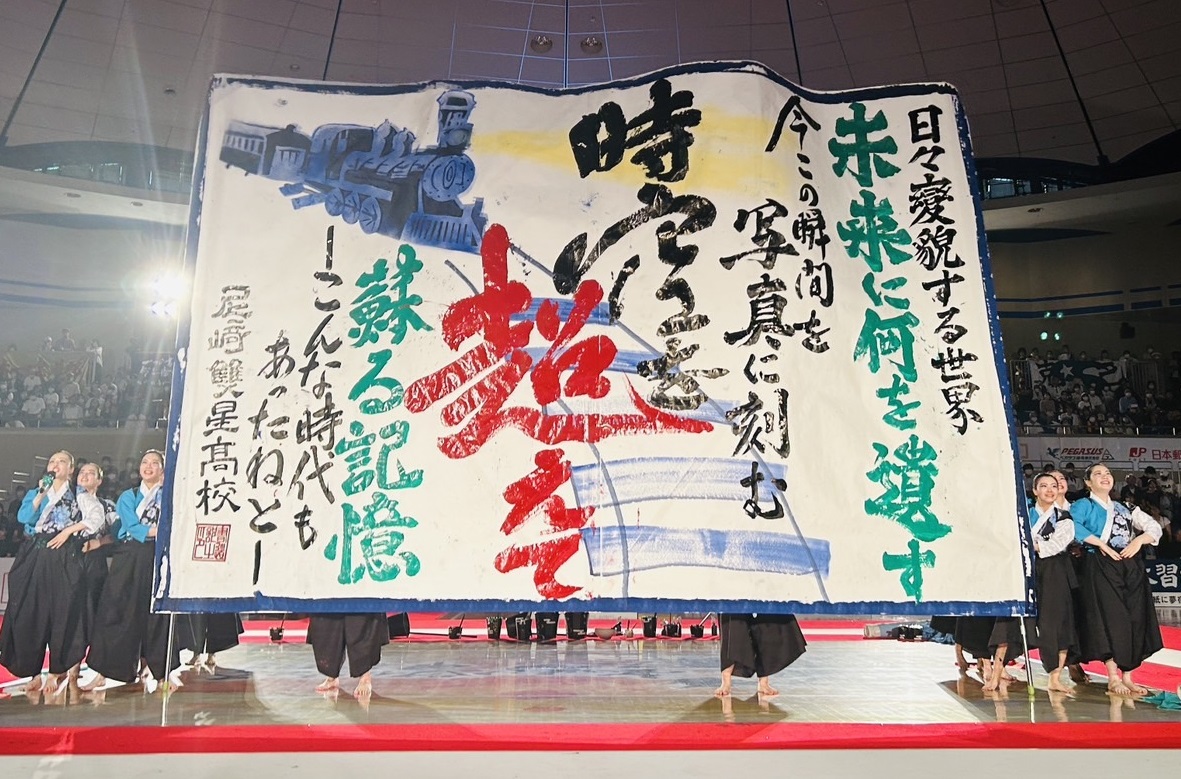 日々變貌する世界
未来に何を遺す
今この瞬間を
写真に刻む
時空を
超えて
蘇る記憶
ーこんな時代も
あったねとー
尼崎雙星高校
PEGASUS
JP 日本郵